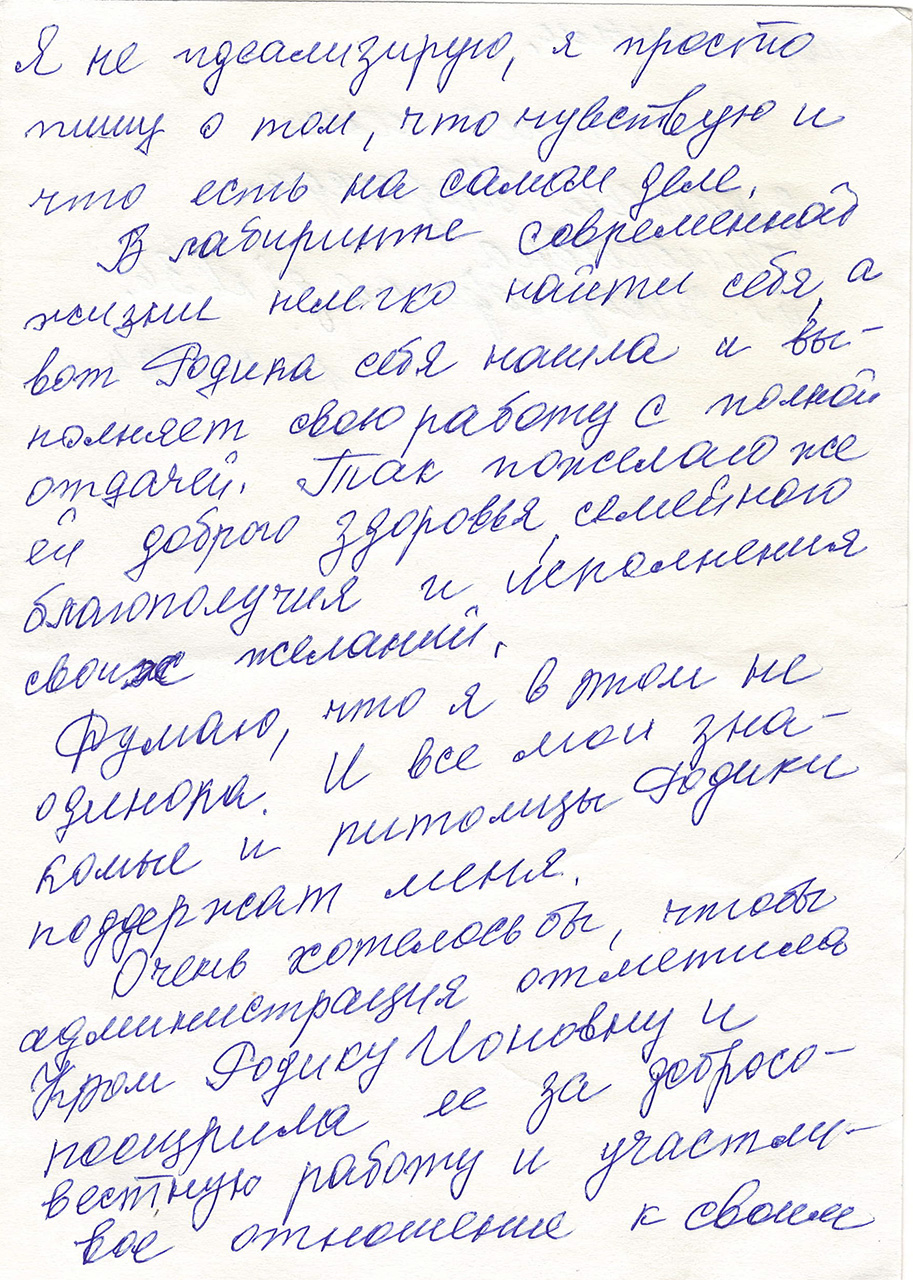 Я не идеализирую, я просто
пишу о том, что чувствую и
что есть на самом деле.
В лабиринте современной
жизни нелегко найти себя, а
вот Родика себя нашла и вы-
полняет свою работу с полной
отдачей. Так пожелаю же
ей доброго здоровья, семейного
благополучия и исполнения
своих желаний.
Думаю, что я в этом не
одинока. И все мои зна-
комые и питомцы Родики
поддержат меня.
Очень хотелось бы, чтобы
администрация отметила
Кром Родику Ионовну и
поощрила ее за добросо-
вестную работу и участли-
вое отношение к своим